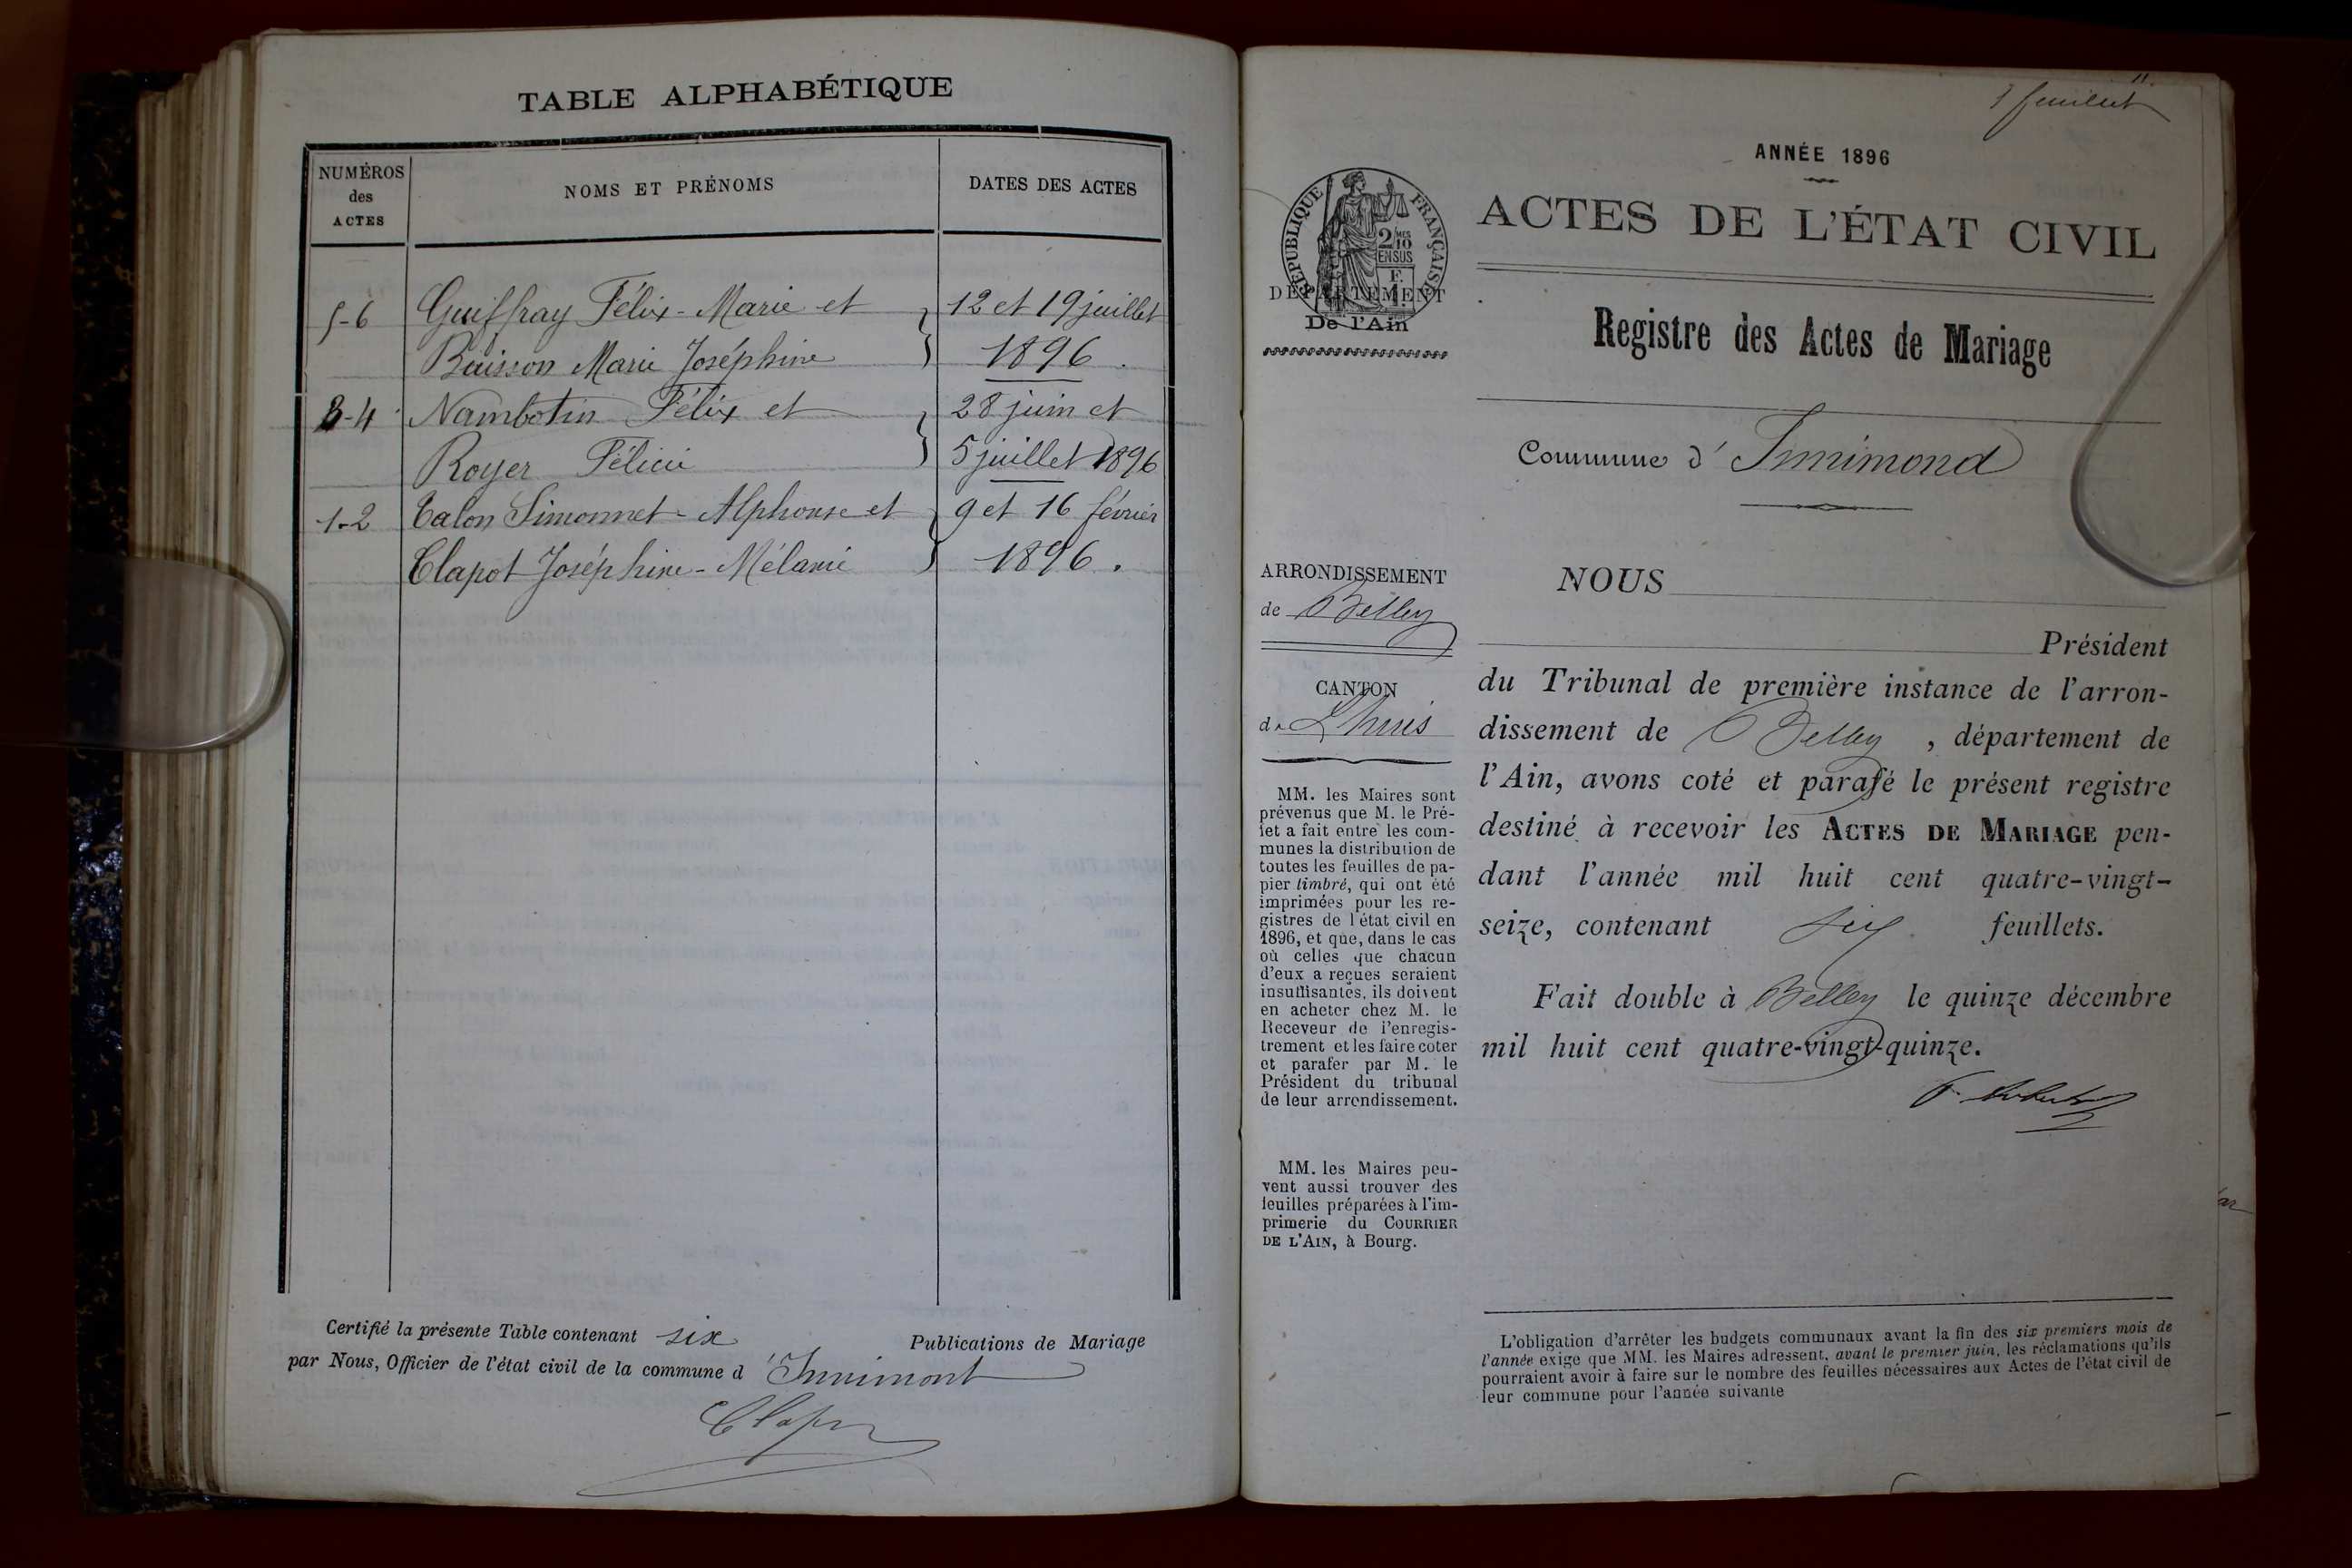 TABLE ALPHABÉTIQUE
NUMÉROS des ACTES
NOMS ET PRÉNOMS
DATES DES ACTES
5-6 Guiffray Félix-Marie et 12 et 19 juillet
Buisson Marie Joséphine 1896.
3-4 Nambotin Félix et 28 juin et
Royer Félicie 5 juillet 1896
1-2 Talon Simonnet-Alphonse et 9 et 16 février
Clapot Joséphine-Mélanie 1896.
Certifié la présente Table contenant six Publications de Mariage
par Nous, Officier de l'état civil de la commune d'Innimont
1 feuillet
ANNÉE 1896
ACTES DE L'ÉTAT CIVIL
RÉPUBLIQUE FRANÇAISE
2/10 MES
EN SUS
F.
1.
DÉPARTEMENT
De l'Ain
Registre des Actes de Mariage
Commune d'Innimond
ARRONDISSEMENT
de Belley
CANTON
de Lhuis
MM. les Maires sont
prévenus que M. le Pré-
fet a fait entre les com-
munes la distribution de
toutes les feuilles de pa-
pier timbré, qui ont été
imprimées pour les re-
gistres de l'état civil en
1896, et que, dans le cas
où celles que chacun
d'eux a reçues seraient
insuffisantes, ils doivent
en acheter chez M. le
Receveur de l'enregis-
trement et les faire coter
et parafer par M. le
Président du tribunal
de leur arrondissement.
MM. les Maires peu-
vent aussi trouver des
feuilles préparées à l'im-
primerie du COURRIER
DE L'AIN, à Bourg.
NOUS
Président
du Tribunal de première instance de l'arron-
dissement de Belley, département de
l'Ain, avons coté et parafé le présent registre
destiné à recevoir les ACTES DE MARIAGE pen-
dant l'année mil huit cent quatre-vingt-
seize, contenant six feuillets.
Fait double à Belley le quinze décembre
mil huit cent quatre-vingt-quinze.
L'obligation d'arrêter les budgets communaux avant la fin des six premiers mois de
l'année exige que MM. les Maires adressent, avant le premier juin, les réclamations qu'ils
pourraient avoir à faire sur le nombre des feuilles nécessaires aux Actes de l'état civil de
leur commune pour l'année suivante